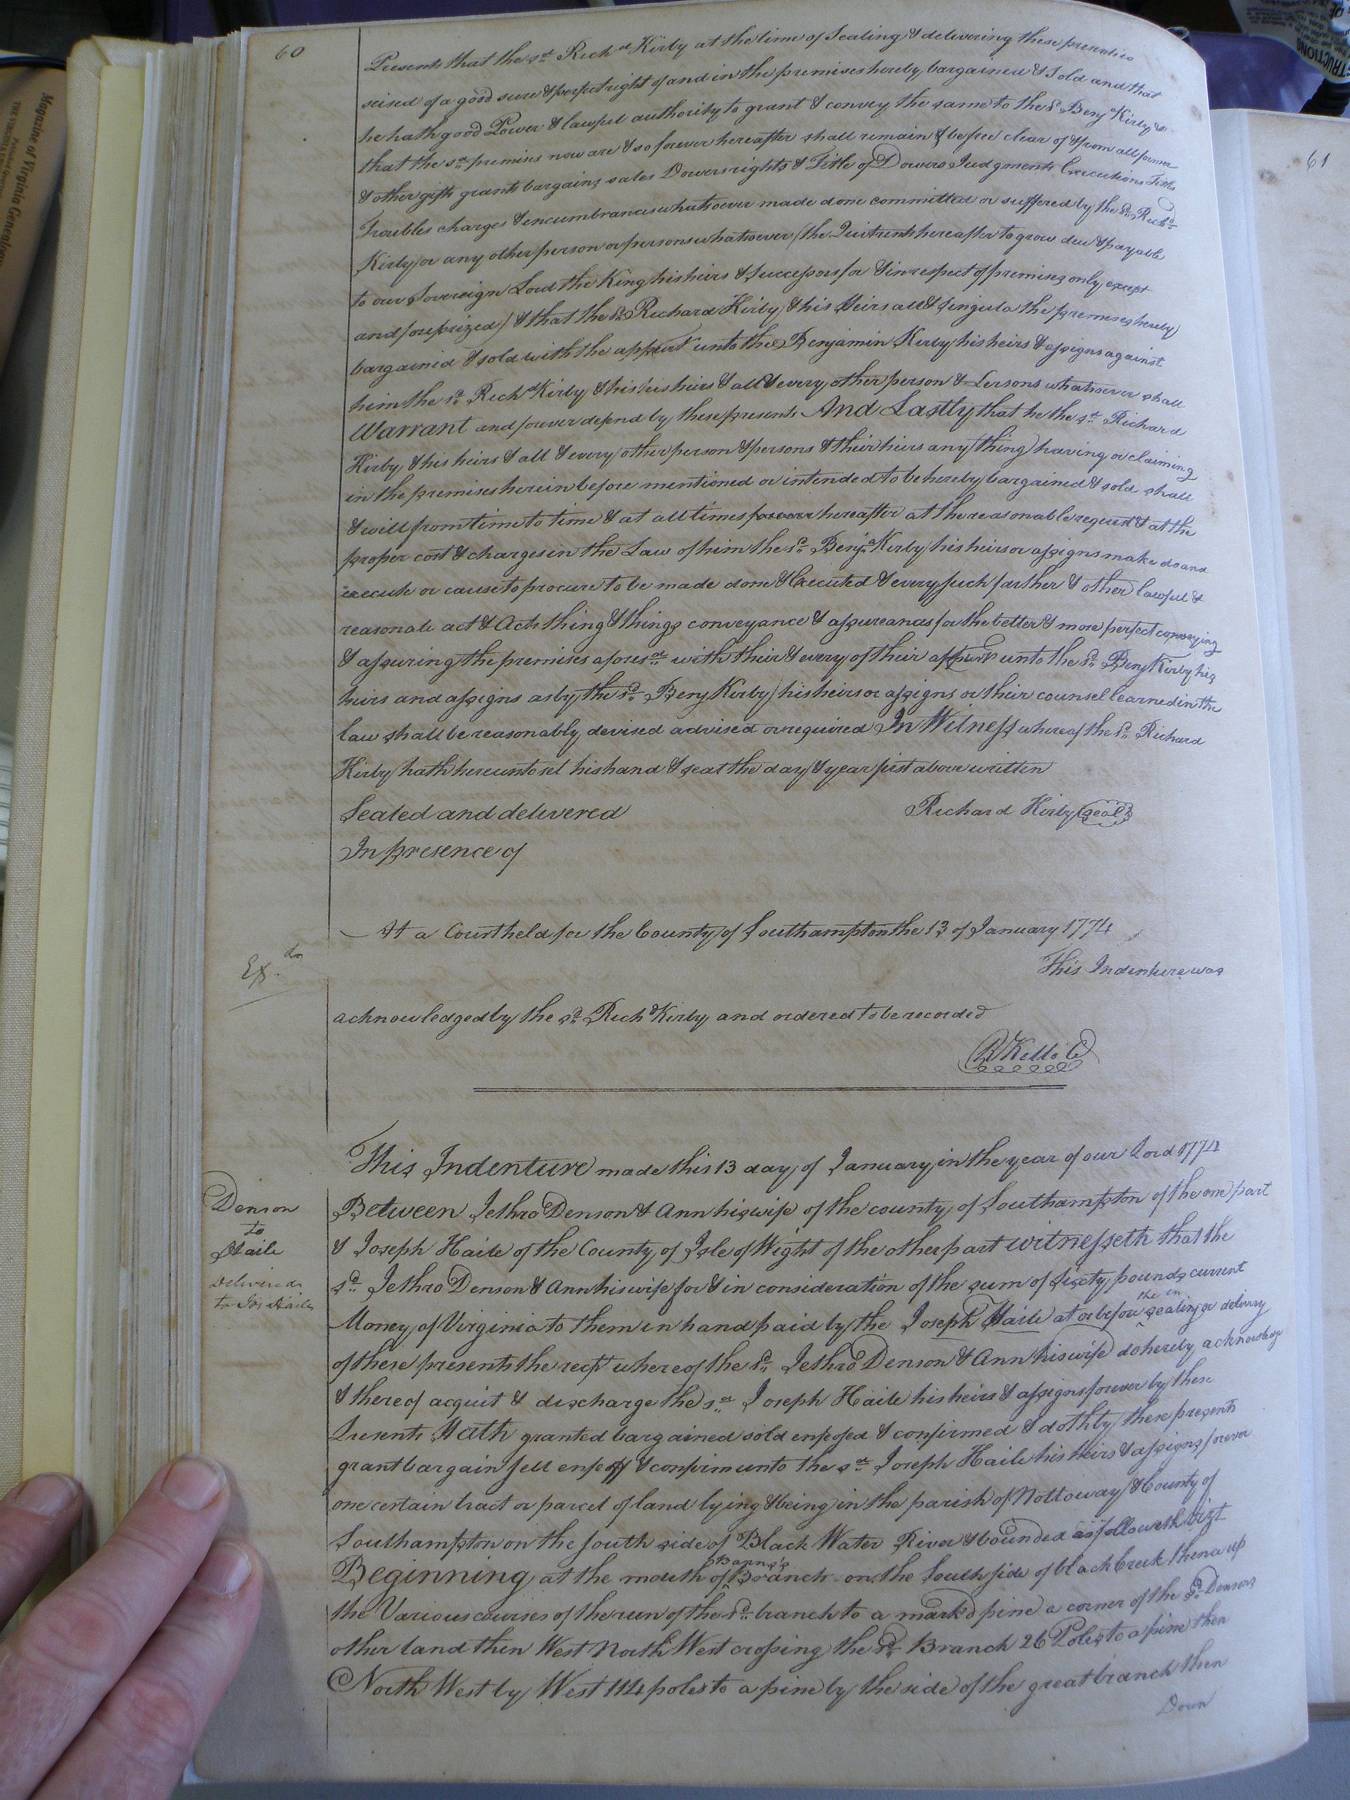 60
Presents that the sd. Richd Kirby at the time of Sealing & delivering these presents
seised of a good sure & perfect right of and in the premises hereby bargained & Sold and that
he hath good Power & lawful authority to grant & convey the same to the sd. Benj Kirby &
that the sd premises now are & so forever hereafter shall remain & be free clear of & from all former
& other gifts grants bargains sales Dowers rights & Title of Dowers Judgments Executions Titles
Troubles charges & encumbrances whatsoever made done committed or suffered by the sd. Richd.
Kirby or any other person or persons whatsoever (the Quitrents hereafter to grow due & payable
to our Sovereign Lord the King his heirs & Successors for & in respect of premises only except
and foreprized) & that the sd. Richard Kirby & his Heirs all & singula the premises hereby
bargained & sold with the appurt unto the Benjamin Kirby his heirs & assigns against
him the sd. Richd Kirby & his heirs & all & every other person & Persons whatsoever shall
Warrant and forever defend by these presents And Lastly that he the sd. Richard
Kirby & his heirs & all & every other person & persons & their heirs any thing having or claiming
in the premises herein before mentioned or intended to be hereby bargained & sold shall
& will from time to time & at all times forever hereafter at the reasonable request & at the
proper cost & charges in the Law of him the sd. Benja Kirby his heirs or assigns make do and
execute or cause to procure to be made done & Executed & every such farther & other lawful &
reasonale act & Acts thing & things conveyance & assureances for the better & more perfect conveying
& assuring the premises aforesd. with their & every of their appurt unto the sd. Benj Kirby his
heirs and assigns as by the sd. Benj Kirby his heirs or assigns or their counsel learned in the
law shall be reasonably devised advised or required In Witness whereof the sd. Richard
Kirby hath hereunto set his hand & seal the day & year first above written
Sealed and delivered Richard Kirby seal
In presence of
At a Court held for the County of Southampton the 13 of January 1774
Ex.d
This Indenture was
acknowledged by the sd. Richd Kirby and ordered to be recorded
R Kello C
This Indenture made this 13 day of January in the year of our Lord 1774
Denson
to
Haile
Delivered
to Jos Haile
Between Jethro Denson & Ann his wife of the county of Southampton of the one part
& Joseph Haile of the County of Isle of Wight of the other part witnesseth that the
sd. Jethro Denson & Ann his wife for & in consideration of the sum of sixty pounds current
Money of Virginia to them in hand paid by the Joseph Haile at or before the en sealing or delivery
of these presents the rect whereof the sd. Jethro Denson & Ann his wife do hereby acknowledge
& thereof acquit & discharge the sd. Joseph Haile his heirs & assigns forever by these
Presents Hath granted bargained sold enfeofed & confirmed & doth by these presents
grant bargain sell enfeoff & confirm unto the sd. Joseph Haile his heirs & assigns forever
one certain tract or parcel of land lying & being in the parish of Nottoway & County of
Southampton on the south side of Black Water River & bounded as followeth Vizt
Beginning at the mouth of Branch on the South side of black Creek thence up
the Various courses of the run of the sd. branch to a mark'd pine a corner of the sd. Densons
other land then West North West crossing the sd. Branch 26 Poles to a pine then
North West by West 114 poles to a pine by the side of the great branch then
Down
61
Magazine of Virginia Genealogy